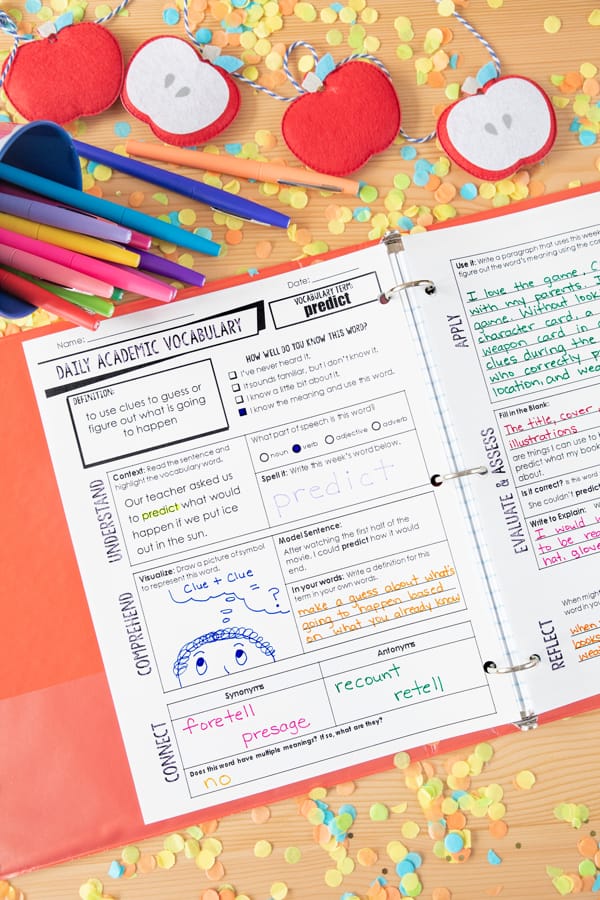 Name:
Date:
DAILY ACADEMIC VOCABULARY
VOCABULARY TERM:
predict
DEFINITION:
to use clues to guess or
figure out what is going
to happen
HOW WELL DO YOU KNOW THIS WORD?
I've never heard it.
It sounds familiar, but I don't know it.
I know a little bit about it.
I know the meaning and use this word.
UNDERSTAND
Context: Read the sentence and
highlight the vocabulary word.
Our teacher asked us
to predict what would
happen if we put ice
out in the sun.
What part of speech is this word?
noun verb adjective adverb
Spell it: Write this week's word below.
predict
COMPREHEND
Visualize: Draw a picture of symbol
to represent this word.
Clue + Clue
= ?
Model Sentence:
After watching the first half of the
movie, I could predict how it would
end.
In your words: Write a definition for this
term in your own words.
make a guess about what's
going to happen based
on what you already know
CONNECT
Synonyms
foretell
presage
Antonyms
recount
retell
Does this word have multiple meanings? If so, what are they?
no
APPLY
Use it: Write a paragraph that uses this week
figure out the word's meaning using the con
I love the game, C
with my parents. I
game. Without look
character card, a
weapon card in
clues during the
who correctly p
location, and wea
EVALUATE & ASSESS
Fill in the Blank:
The title, cover,
illustrations
are things I can use to
predict what my book
about.
Is it correct? Is this
She couldn't predict
Write to Explain:
I would
to be rea
hat, glove
REFLECT
When might
word in you
when
books
weat